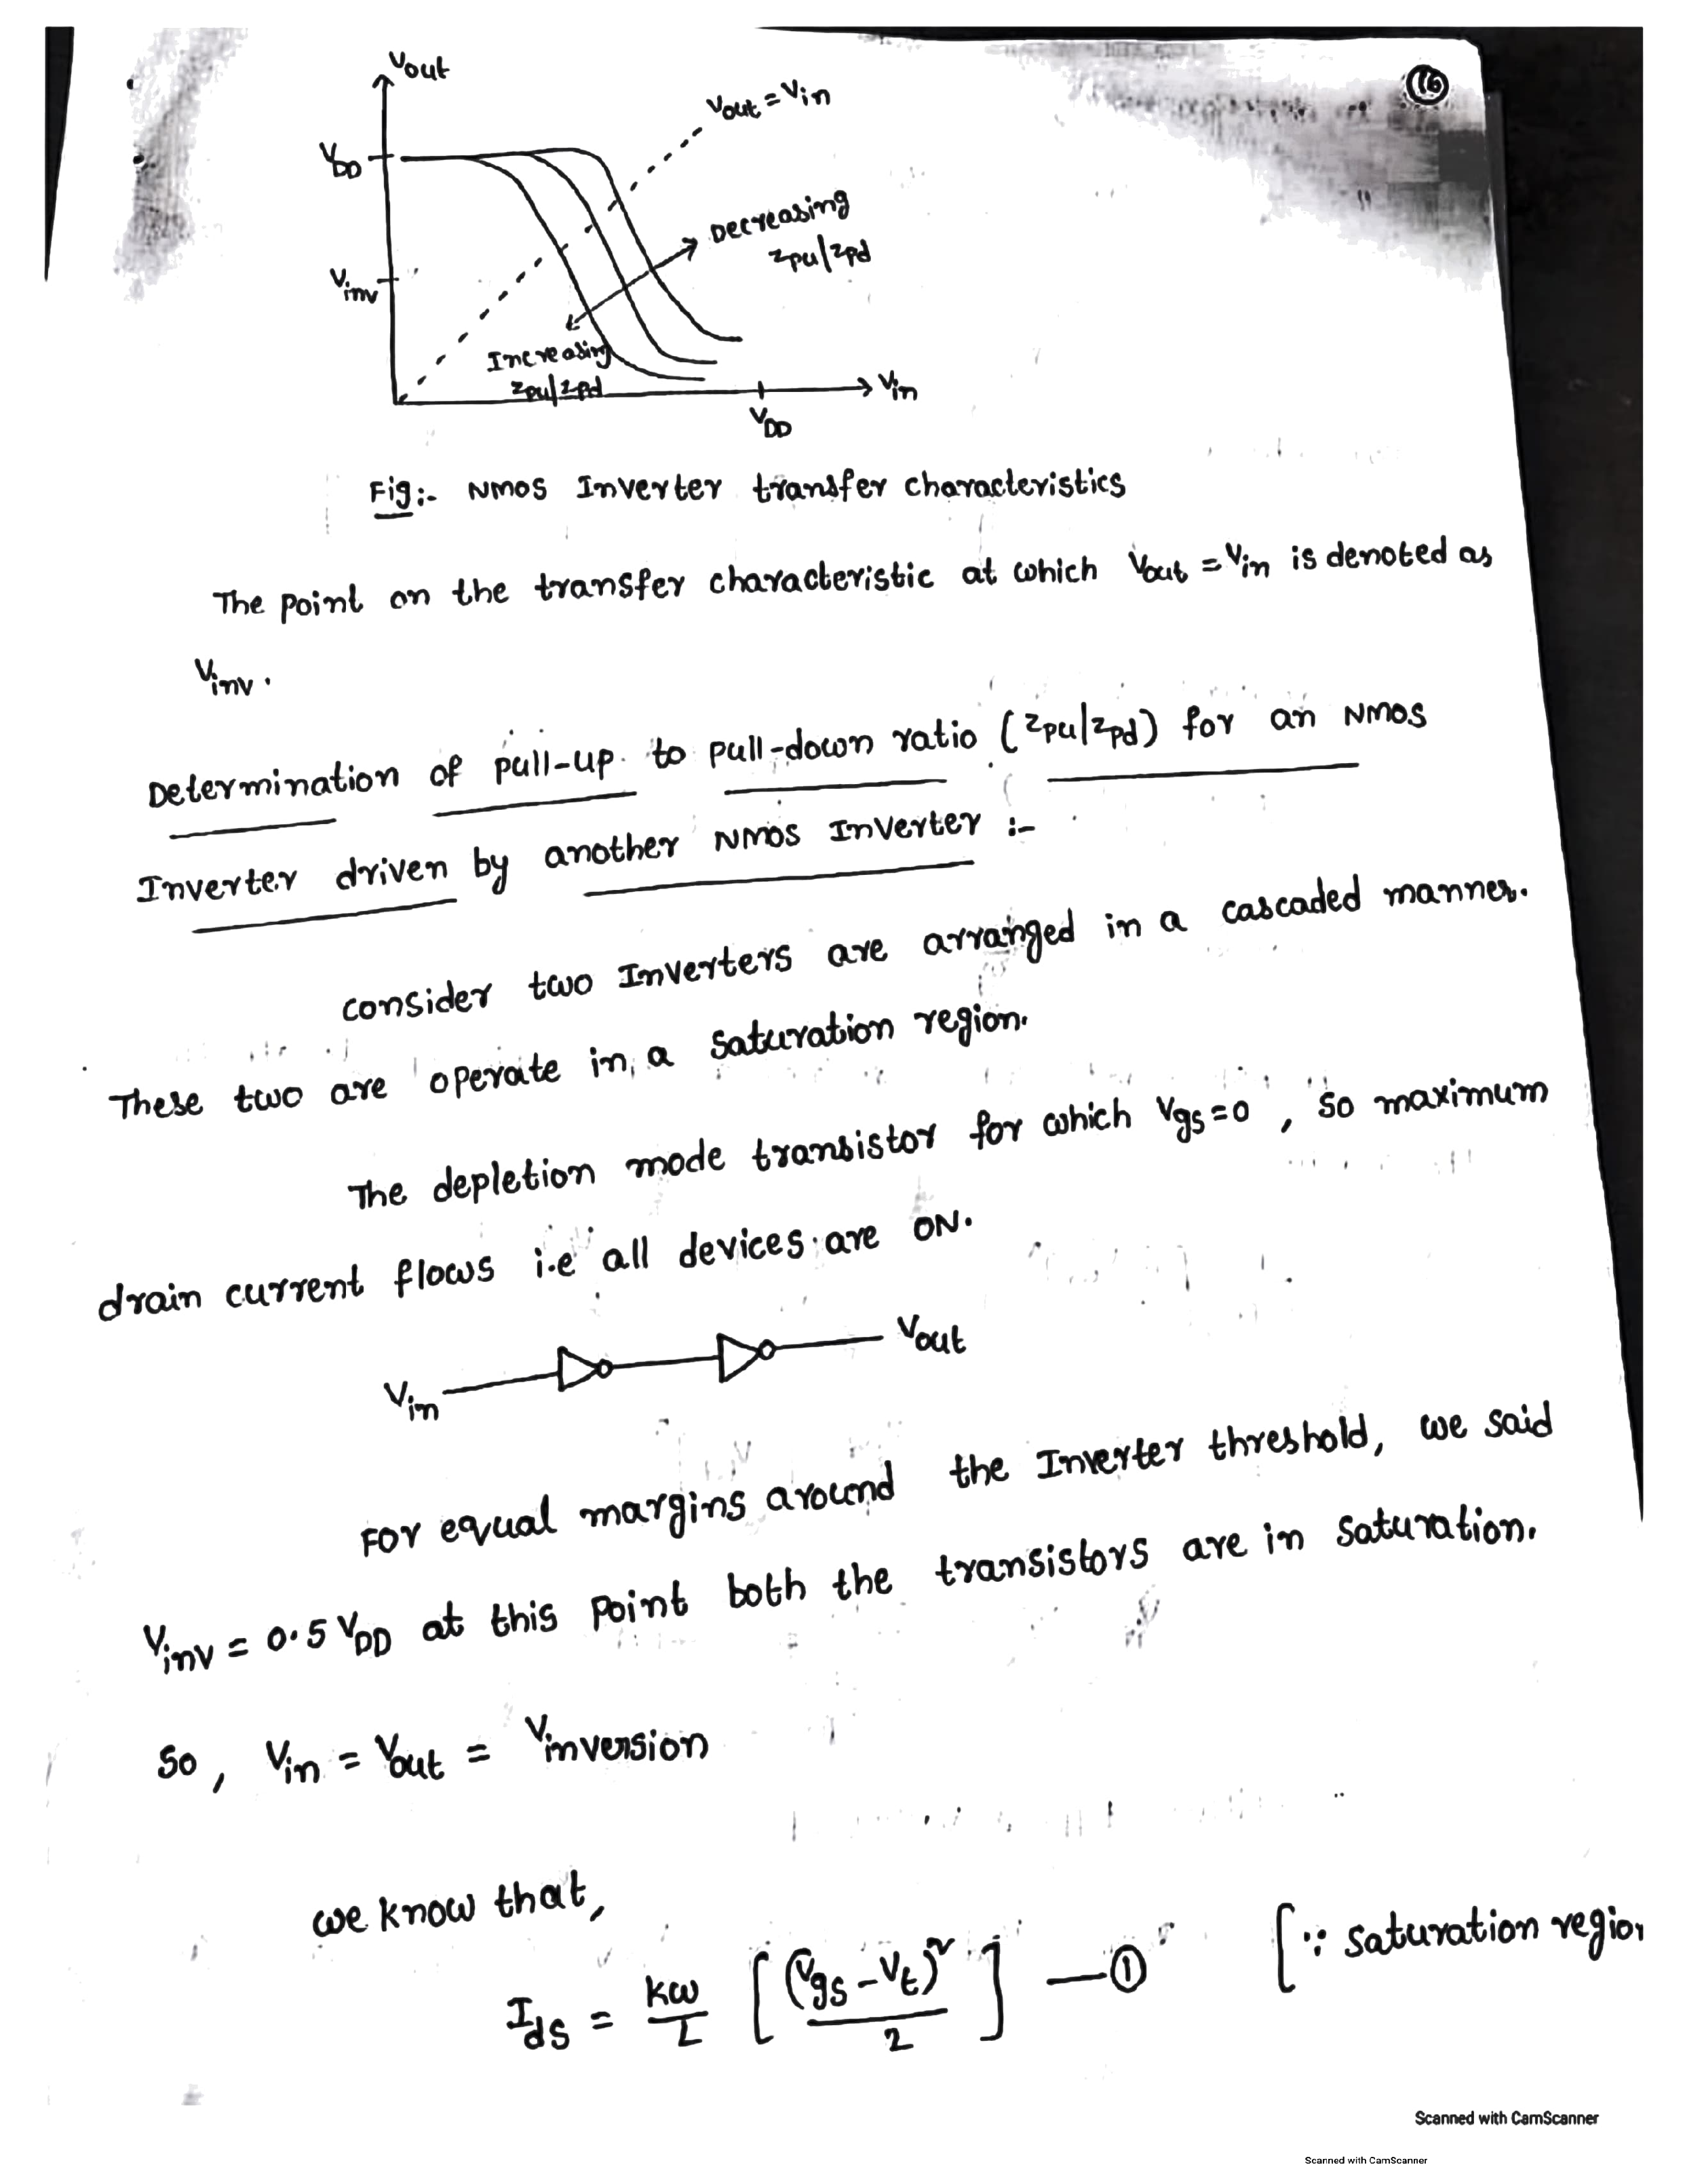 16
Vout
Vout = Vin
VDD
Decreasing
Zpu/Zpd
Vinv
Increasing
Zpu/Zpd
Vin
VDD
Fig:- NMOS Inverter transfer characteristics
The point on the transfer characteristic at which Vout = Vin is denoted as
Vinv.
Determination of pull-up to pull-down ratio (Zpu/Zpd) for an NMOS
Inverter driven by another NMOS Inverter :-
consider two Inverters are arranged in a cascaded manner.
These two are operate in a saturation region.
The depletion mode transistor for which Vgs = 0, so maximum
drain current flows i.e all devices are ON.
Vin Vout
For equal margins around the Inverter threshold, we said
Vinv = 0.5 VDD at this point both the transistors are in saturation.
So, Vin = Vout = Vinversion
we know that,
Ids = kw/L [(Vgs - Vt)²/2] —① [∵ saturation region
Scanned with CamScanner
Scanned with CamScanner